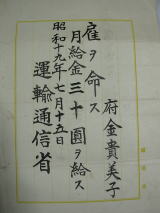 府金貴美子
雇ヲ命ス
月給金三十圓ヲ給ス
昭和十九年七月十五日
運輸通信省